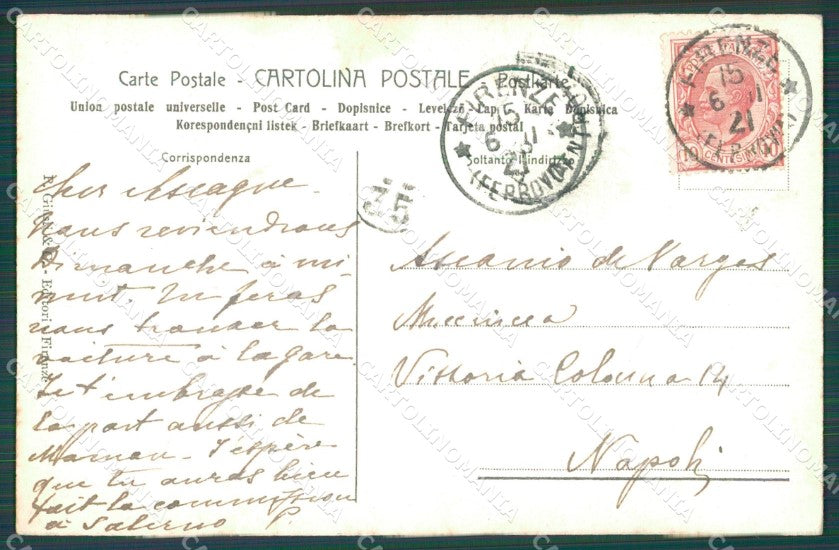 Carte Postale - CARTOLINA POSTALE - Postkarte
Union postale universelle - Post Card - Dopisnice - Levelező Lap - Karta Dopisnica
Korespondençni listek - Briefkaart - Brefkort - Tarjeta postal
Corrispondenza
Soltanto l'indirizzo
FIRENZE
15
6 21
(FERROVIA)
FIRENZE
15
6 21
(FERROVIA)
CENTESIMI
Cher Ascagne
Nous reviendrons
Dimanche à mi-
nuit. Tu feras
nous trouver la
voiture à la gare
Je t'embrasse de
la part aussi de
Maman - J'espère
que tu auras bien
fait la commission
à Salerno P.
Ascanio de Vargas
Vittoria Colonna 14
Napoli
& - Editori - Firenze
CARTOLINOMANIA